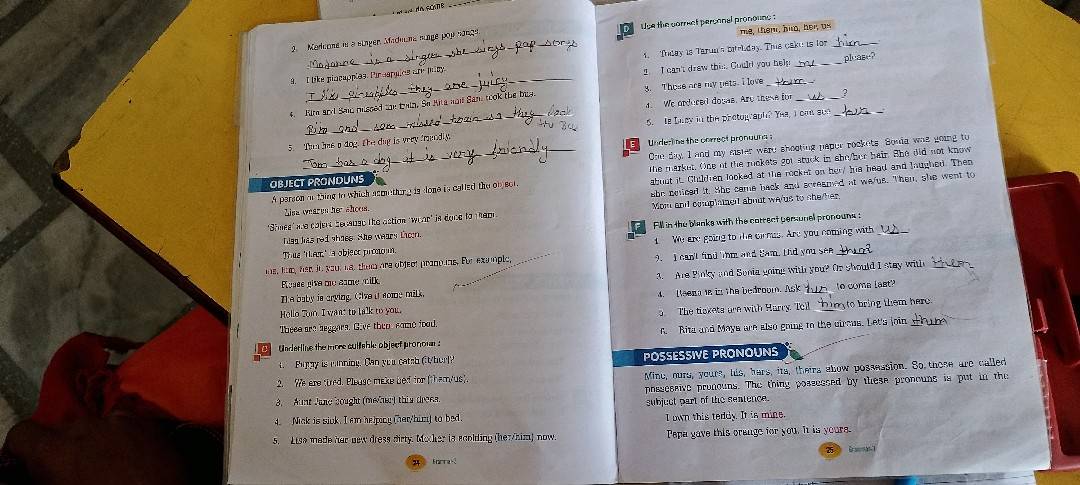 2. Madonna is a singer. Madonna sings pop songs.
Madonna is a singer she sings pop songs
3. I like pineapples. Pineapples are juicy.
I like pineapples they are juicy
4. Rita and Sam missed the train. So Rita and Sam took the bus.
Rita and sam missed train so they took
the bus
5. Tom has a dog. The dog is very friendly.
Tom has a dog it is very friendly
OBJECT PRONOUNS
A person or thing to which something is done is called the object.
Lisa wears her shoes.
'Shoes' are object because the action 'wear' is done to them.
Lisa has red shoes. She wears them.
Thus 'them' is object pronoun.
me, him, her, it, you, us, them are object pronouns. For example,
Please give me some milk.
The baby is crying. Give it some milk.
Hello Tom. I want to talk to you.
These are beggars. Give them some food.
C Underline the more suitable object pronoun :
1. Puppy is running. Can you catch (it/her)?
2. We are tired. Please make bed for (them/us).
3. Aunt Jane bought (me/her) this dress.
4. Nick is sick. I am helping (her/him) to bed.
5. Lisa made her new dress dirty. Mother is scolding (her/him) now.
24 Grammar-3
D Use the correct personal pronouns :
me, them, him, her, us
1. Today is Tarun's birthday. This cake is for him
2. I can't draw this. Could you help me please?
3. These are my pets. I love them
4. We ordered dosas. Are these for us ?
5. Is Lucy in the photograph? Yes, I can see
E Underline the correct pronouns :
One day, I and my sister were shooting paper rockets. Sonia was going to
the market. One of the rockets got stuck in she/her hair. She did not know
about it. Children looked at the rocket on her/ his head and laughed. Then
she noticed it. She came back and screamed at we/us. Then, she went to
Mom and complained about we/us to she/her.
F Fill in the blanks with the correct personal pronouns :
1. We are going to the circus. Are you coming with us
2. I can't find Tim and Sam. Did you see them?
3. Are Pinky and Sonia going with you? Or should I stay with them
4. Reena is in the bedroom. Ask her to come fast?
5. The tickets are with Harry. Tell him to bring them here.
6. Rita and Maya are also going to the circus. Let's join them
POSSESSIVE PRONOUNS
Mine, ours, yours, his, hers, its, theirs show possession. So, these are called
possessive pronouns. The thing possessed by these pronouns is put in the
subject part of the sentence.
I own this teddy. It is mine.
Papa gave this orange for you. It is yours.
25 Grammar-3